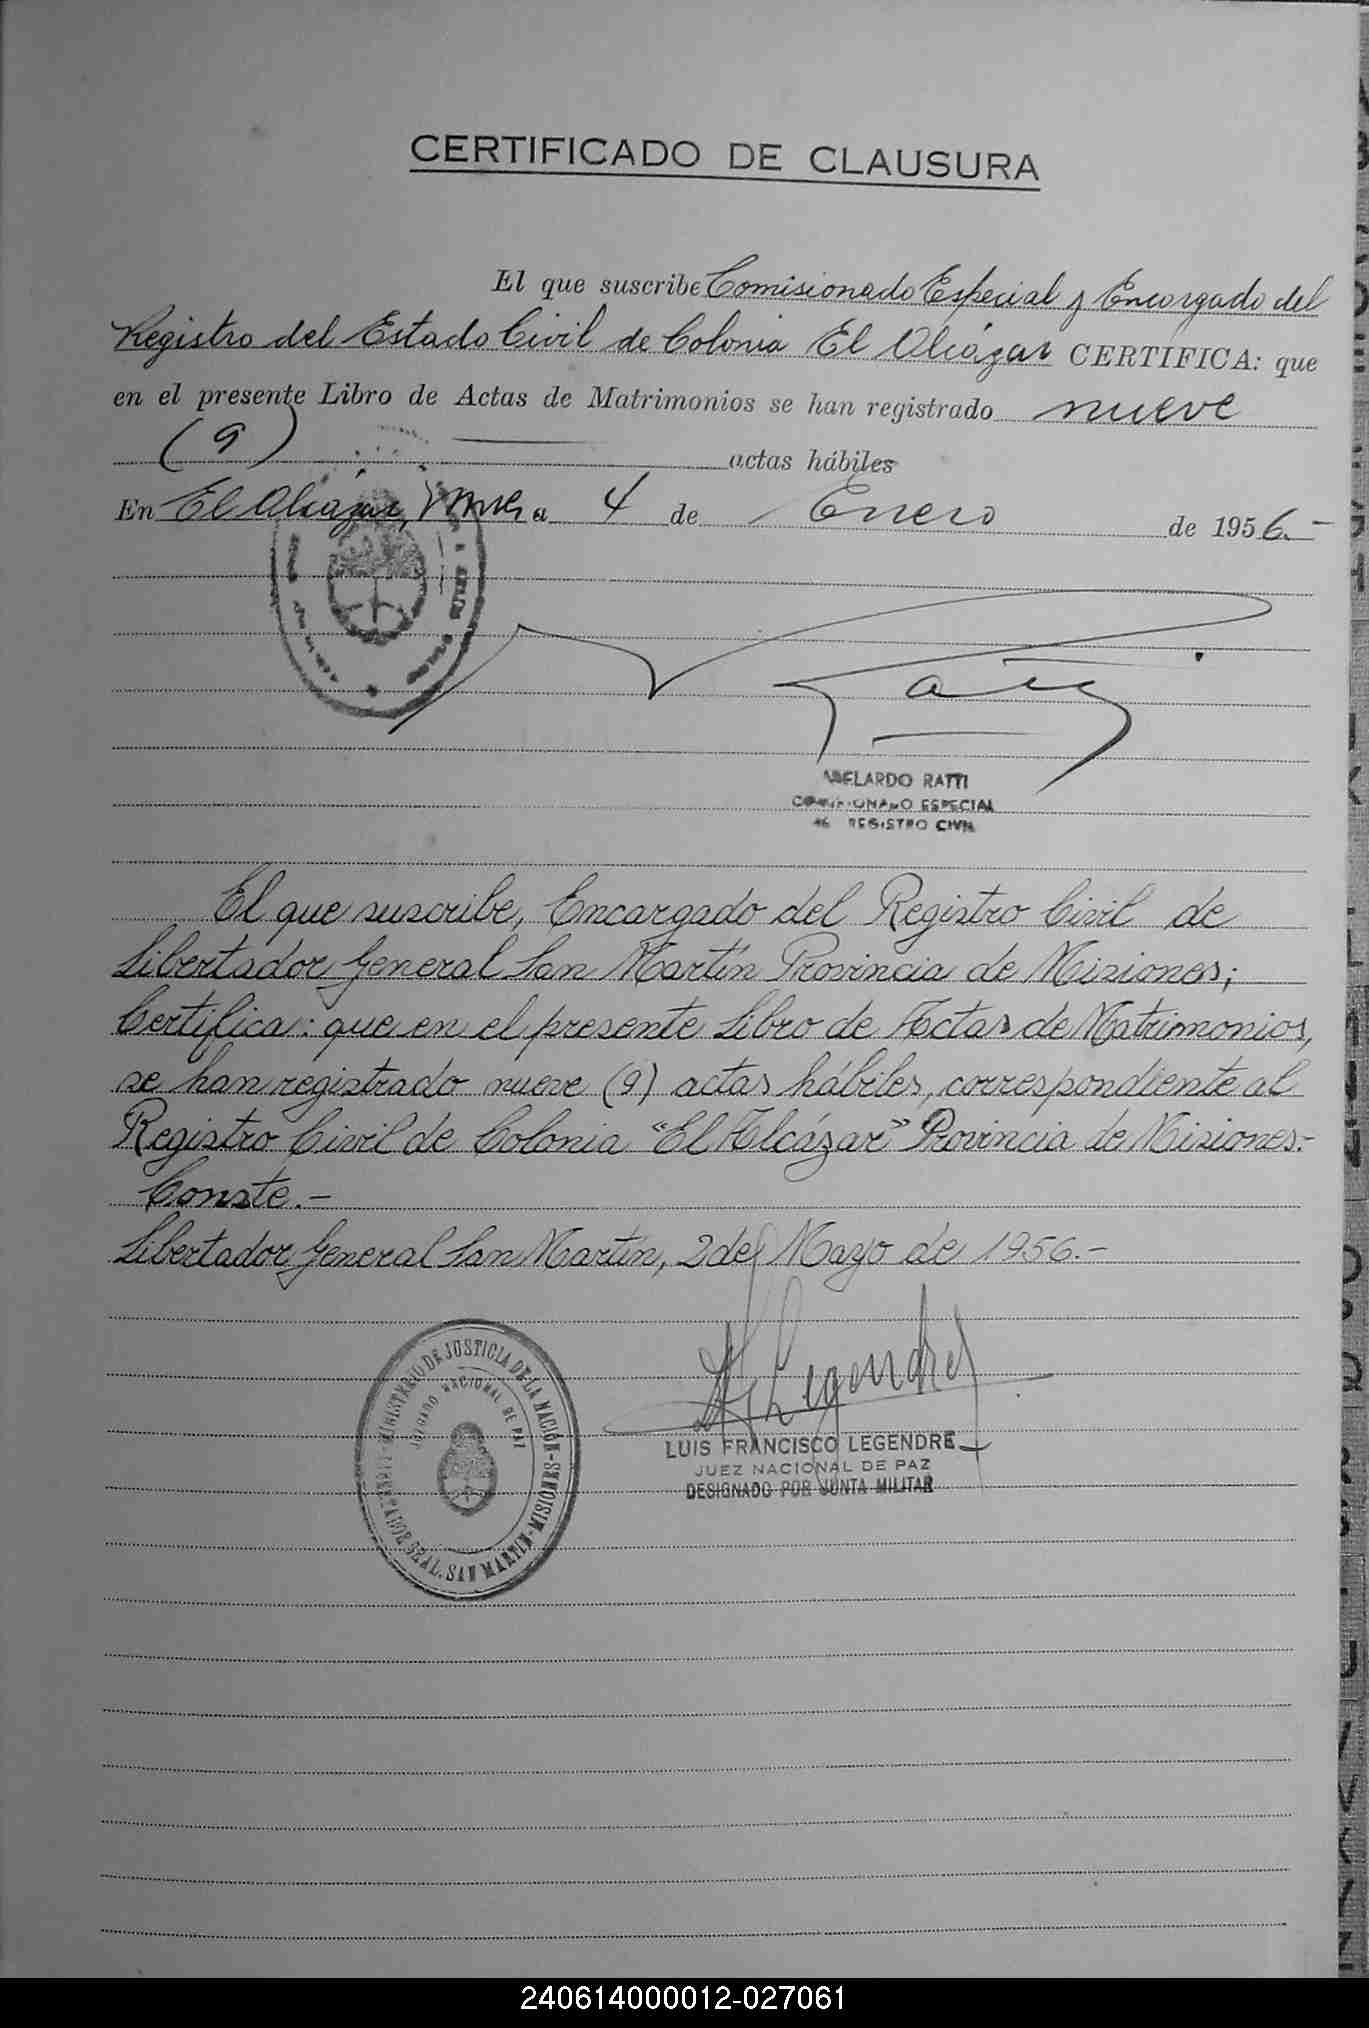 CERTIFICADO DE CLAUSURA
El que suscribe Comisionado Especial y Encargado del
Registro del Estado Civil de Colonia El Alcázar CERTIFICA: que
en el presente Libro de Actas de Matrimonios se han registrado nueve
(9) actas hábiles
En El Alcázar, a 4 de Enero de 1956.-
ABELARDO RATTI
COMISIONADO ESPECIAL
REGISTRO CIVIL
El que suscribe, Encargado del Registro Civil de
Libertador General San Martín Provincia de Misiones;
Certifica: que en el presente Libro de Actas de Matrimonios,
se han registrado nueve (9) actas hábiles, correspondiente al
Registro Civil de Colonia "El Alcázar" Provincia de Misiones.-
Conste.-
Libertador General San Martín, 2 de Mayo de 1956.-
MINISTERIO DE JUSTICIA DE LA NACIÓN-MISIONES-
JUZGADO NACIONAL DE PAZ
LIBERTADOR GRAL. SAN MARTIN-
Legendre
LUIS FRANCISCO LEGENDRE
JUEZ NACIONAL DE PAZ
DESIGNADO POR JUNTA MILITAR
240614000012-027061